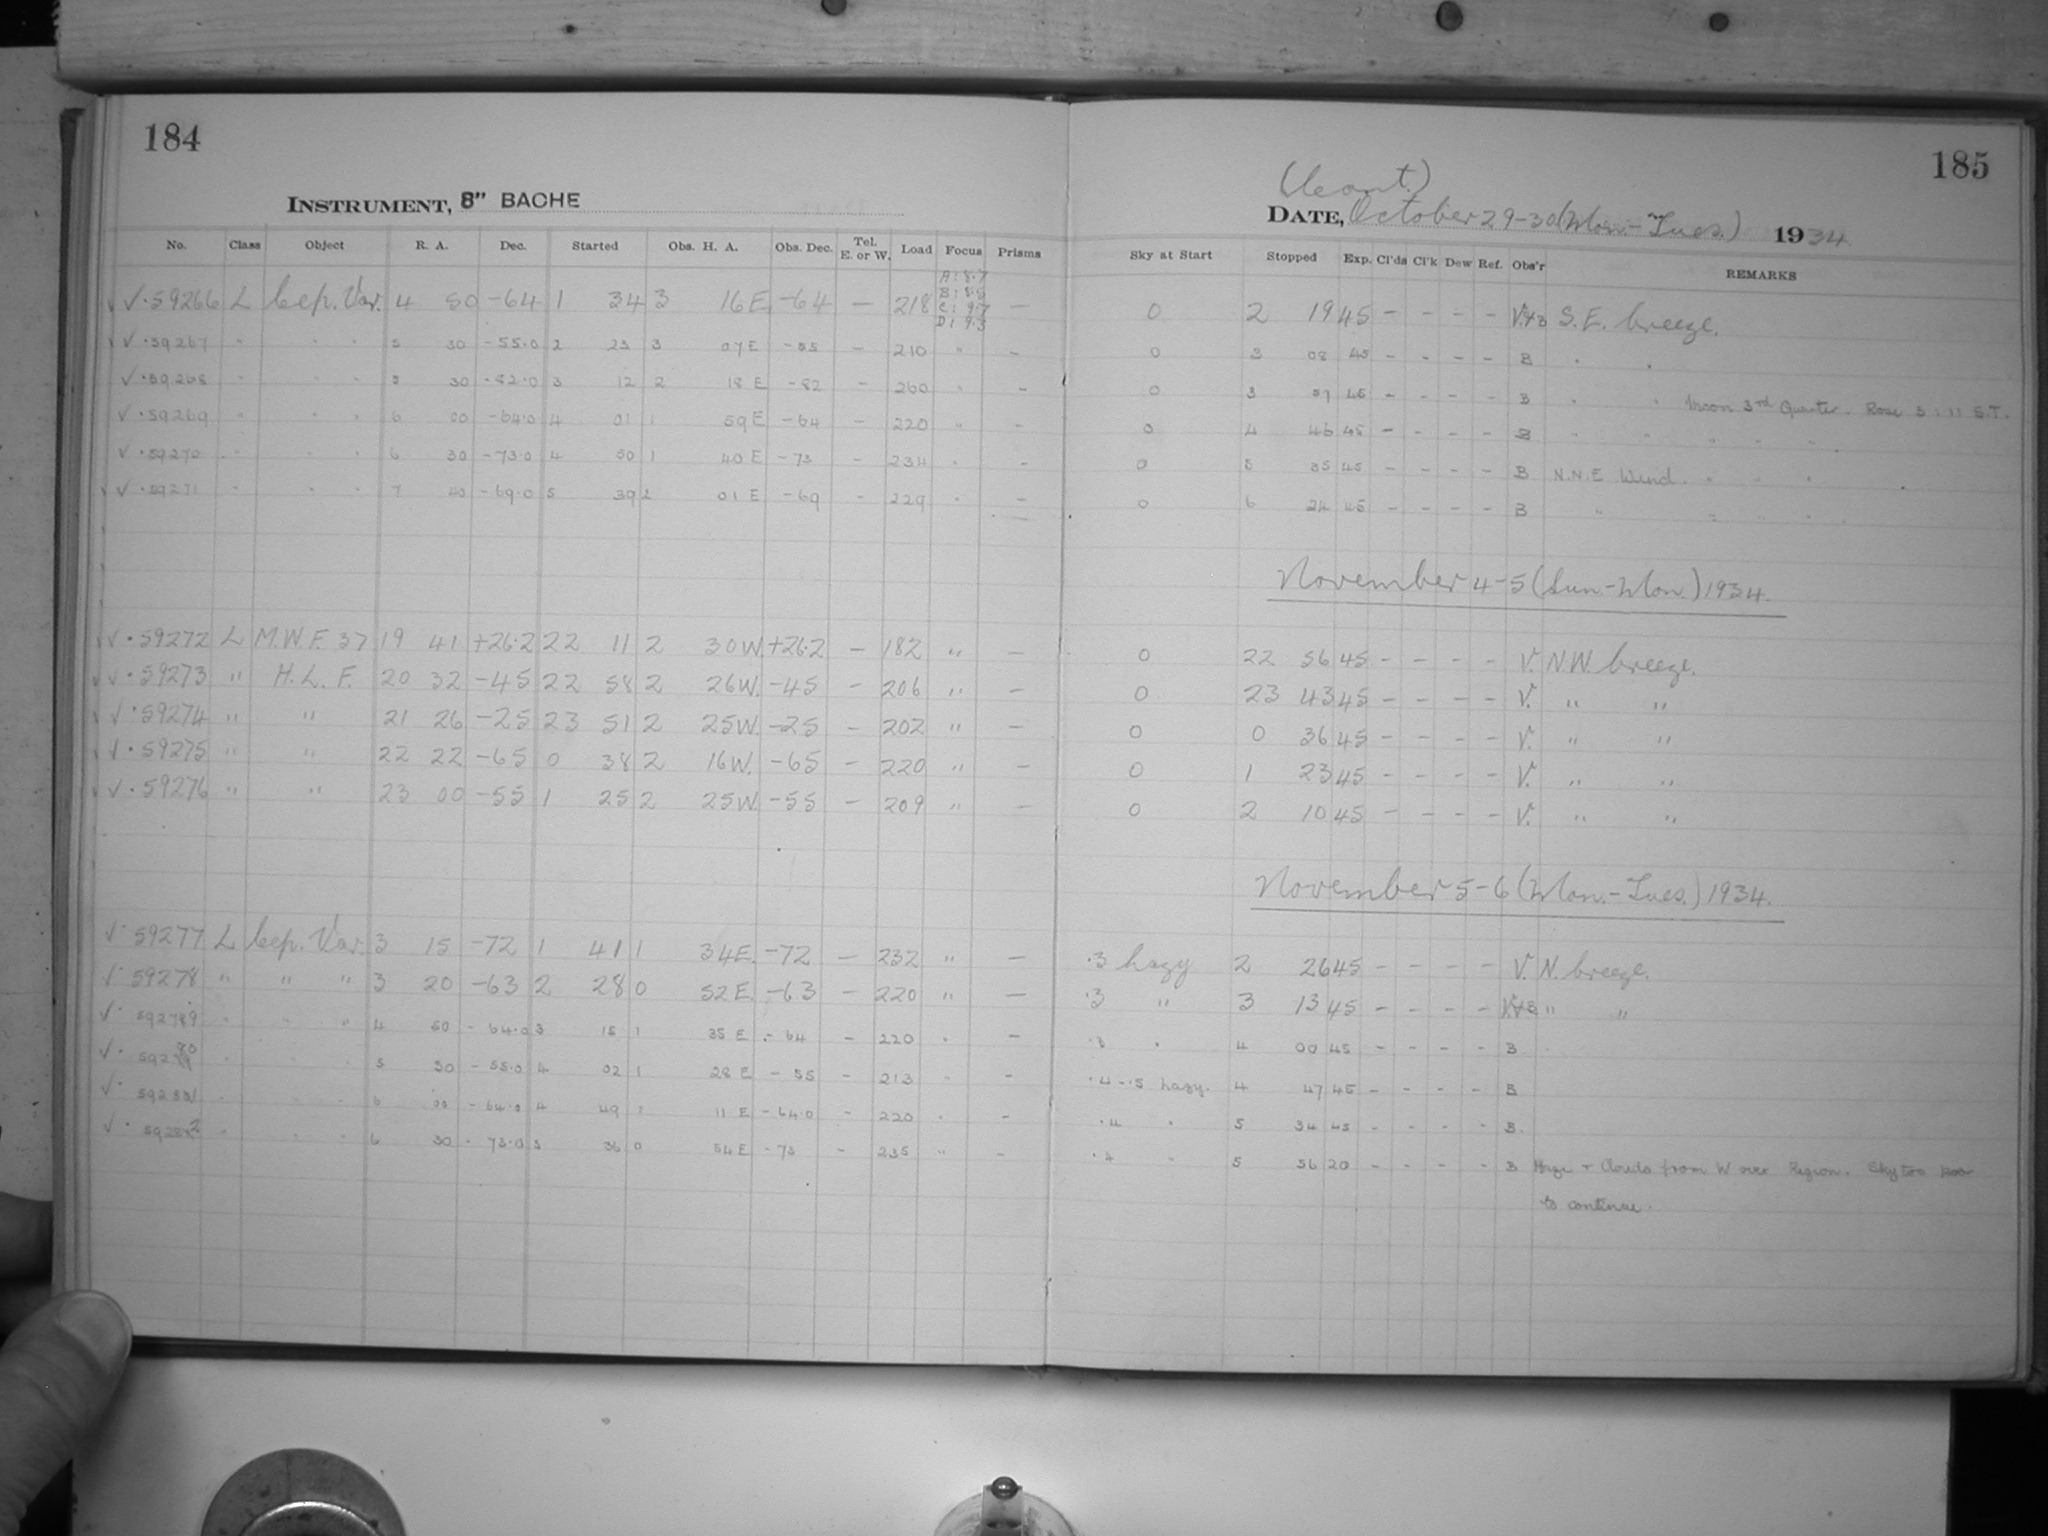 184
INSTRUMENT, 8" BACHE
No. Class Object R. A. Dec. Started Obs. H. A. Obs. Dec. Tel. E. or W. Load Focus Prisms
√·59266 L Cep. Var. 4 50 -64 1 34 3 16 E -64 — 218 A: 8.7 B: 8.8 C: 9.7 D: 9.3 —
√·59267 " " " 5 30 -55.0 2 23 3 07 E -55 — 210 " —
√·59268 " " " 5 30 -82.0 3 12 2 18 E -82 — 260 " —
√·59269 " " " 6 00 -64.0 4 01 1 59 E -64 — 220 " —
√·59270 " " " 6 30 -73.0 4 50 1 40 E -73 — 234 " —
√·59271 " " " 7 40 -69.0 5 39 2 01 E -69 — 229 " —
√·59272 L M.W.F. 37 19 41 +26.2 22 11 2 30 W. +26.2 — 182 " —
√·59273 " H. L. F. 20 32 -45 22 58 2 26 W. -45 — 206 " —
√·59274 " " 21 26 -25 23 51 2 25 W -25 — 202 " —
√·59275 " " 22 22 -65 0 38 2 16 W. -65 — 220 " —
√·59276 " " 23 00 -55 1 25 2 25 W -55 — 209 " —
√· 59277 L Cep. Var. 3 15 -72 1 41 1 34 E. -72 — 232 " —
√· 59278 " " " 3 20 -63 2 28 0 52 E. -63 — 220 " —
√· 59279 " " " 4 50 -64.0 3 15 1 35 E -64 — 220 " —
√· 59280 " " " 5 30 -55.0 4 02 1 28 E -55 — 213 " —
√· 59281 " " " 6 00 -64.0 4 49 1 11 E -64.0 — 220 " —
√· 59282 " " " 6 30 -73.0 5 36 0 54 E -73 — 235 " —
185
(Cont.)
DATE, October 29-30 (Mon.-Tues.) 1934
Sky at Start Stopped Exp. Cl'ds Cl'k Dew Ref. Obs'r REMARKS
0 2 19 45 - - - - V+B S. E. breeze.
0 3 08 45 - - - - B " "
0 3 57 45 - - - - B " " Moon 3rd Quarter. Rose 3:11 S.T.
0 4 46 45 - - - - B " " " " "
0 5 35 45 - - - - B N.N.E Wind. " " " "
0 6 24 45 - - - - B " " " "
November 4-5 (Sun-Mon.) 1934.
0 22 56 45 - - - - V. N.W. breeze.
0 23 43 45 - - - - V. " "
0 0 36 45 - - - - V. " "
0 1 23 45 - - - - V. " "
0 2 10 45 - - - - V. " "
November 5-6 (Mon.-Tues.) 1934.
.3 hazy 2 26 45 - - - - V. N. breeze.
.3 " 3 13 45 - - - - V+B " "
.3 " 4 00 45 - - - - B
.4-.5 hazy. 4 47 45 - - - - B
.4 " 5 34 45 - - - - B.
.4 " 5 56 20 - - - - B Haze + Clouds from W over Region. Sky too poor
to continue.